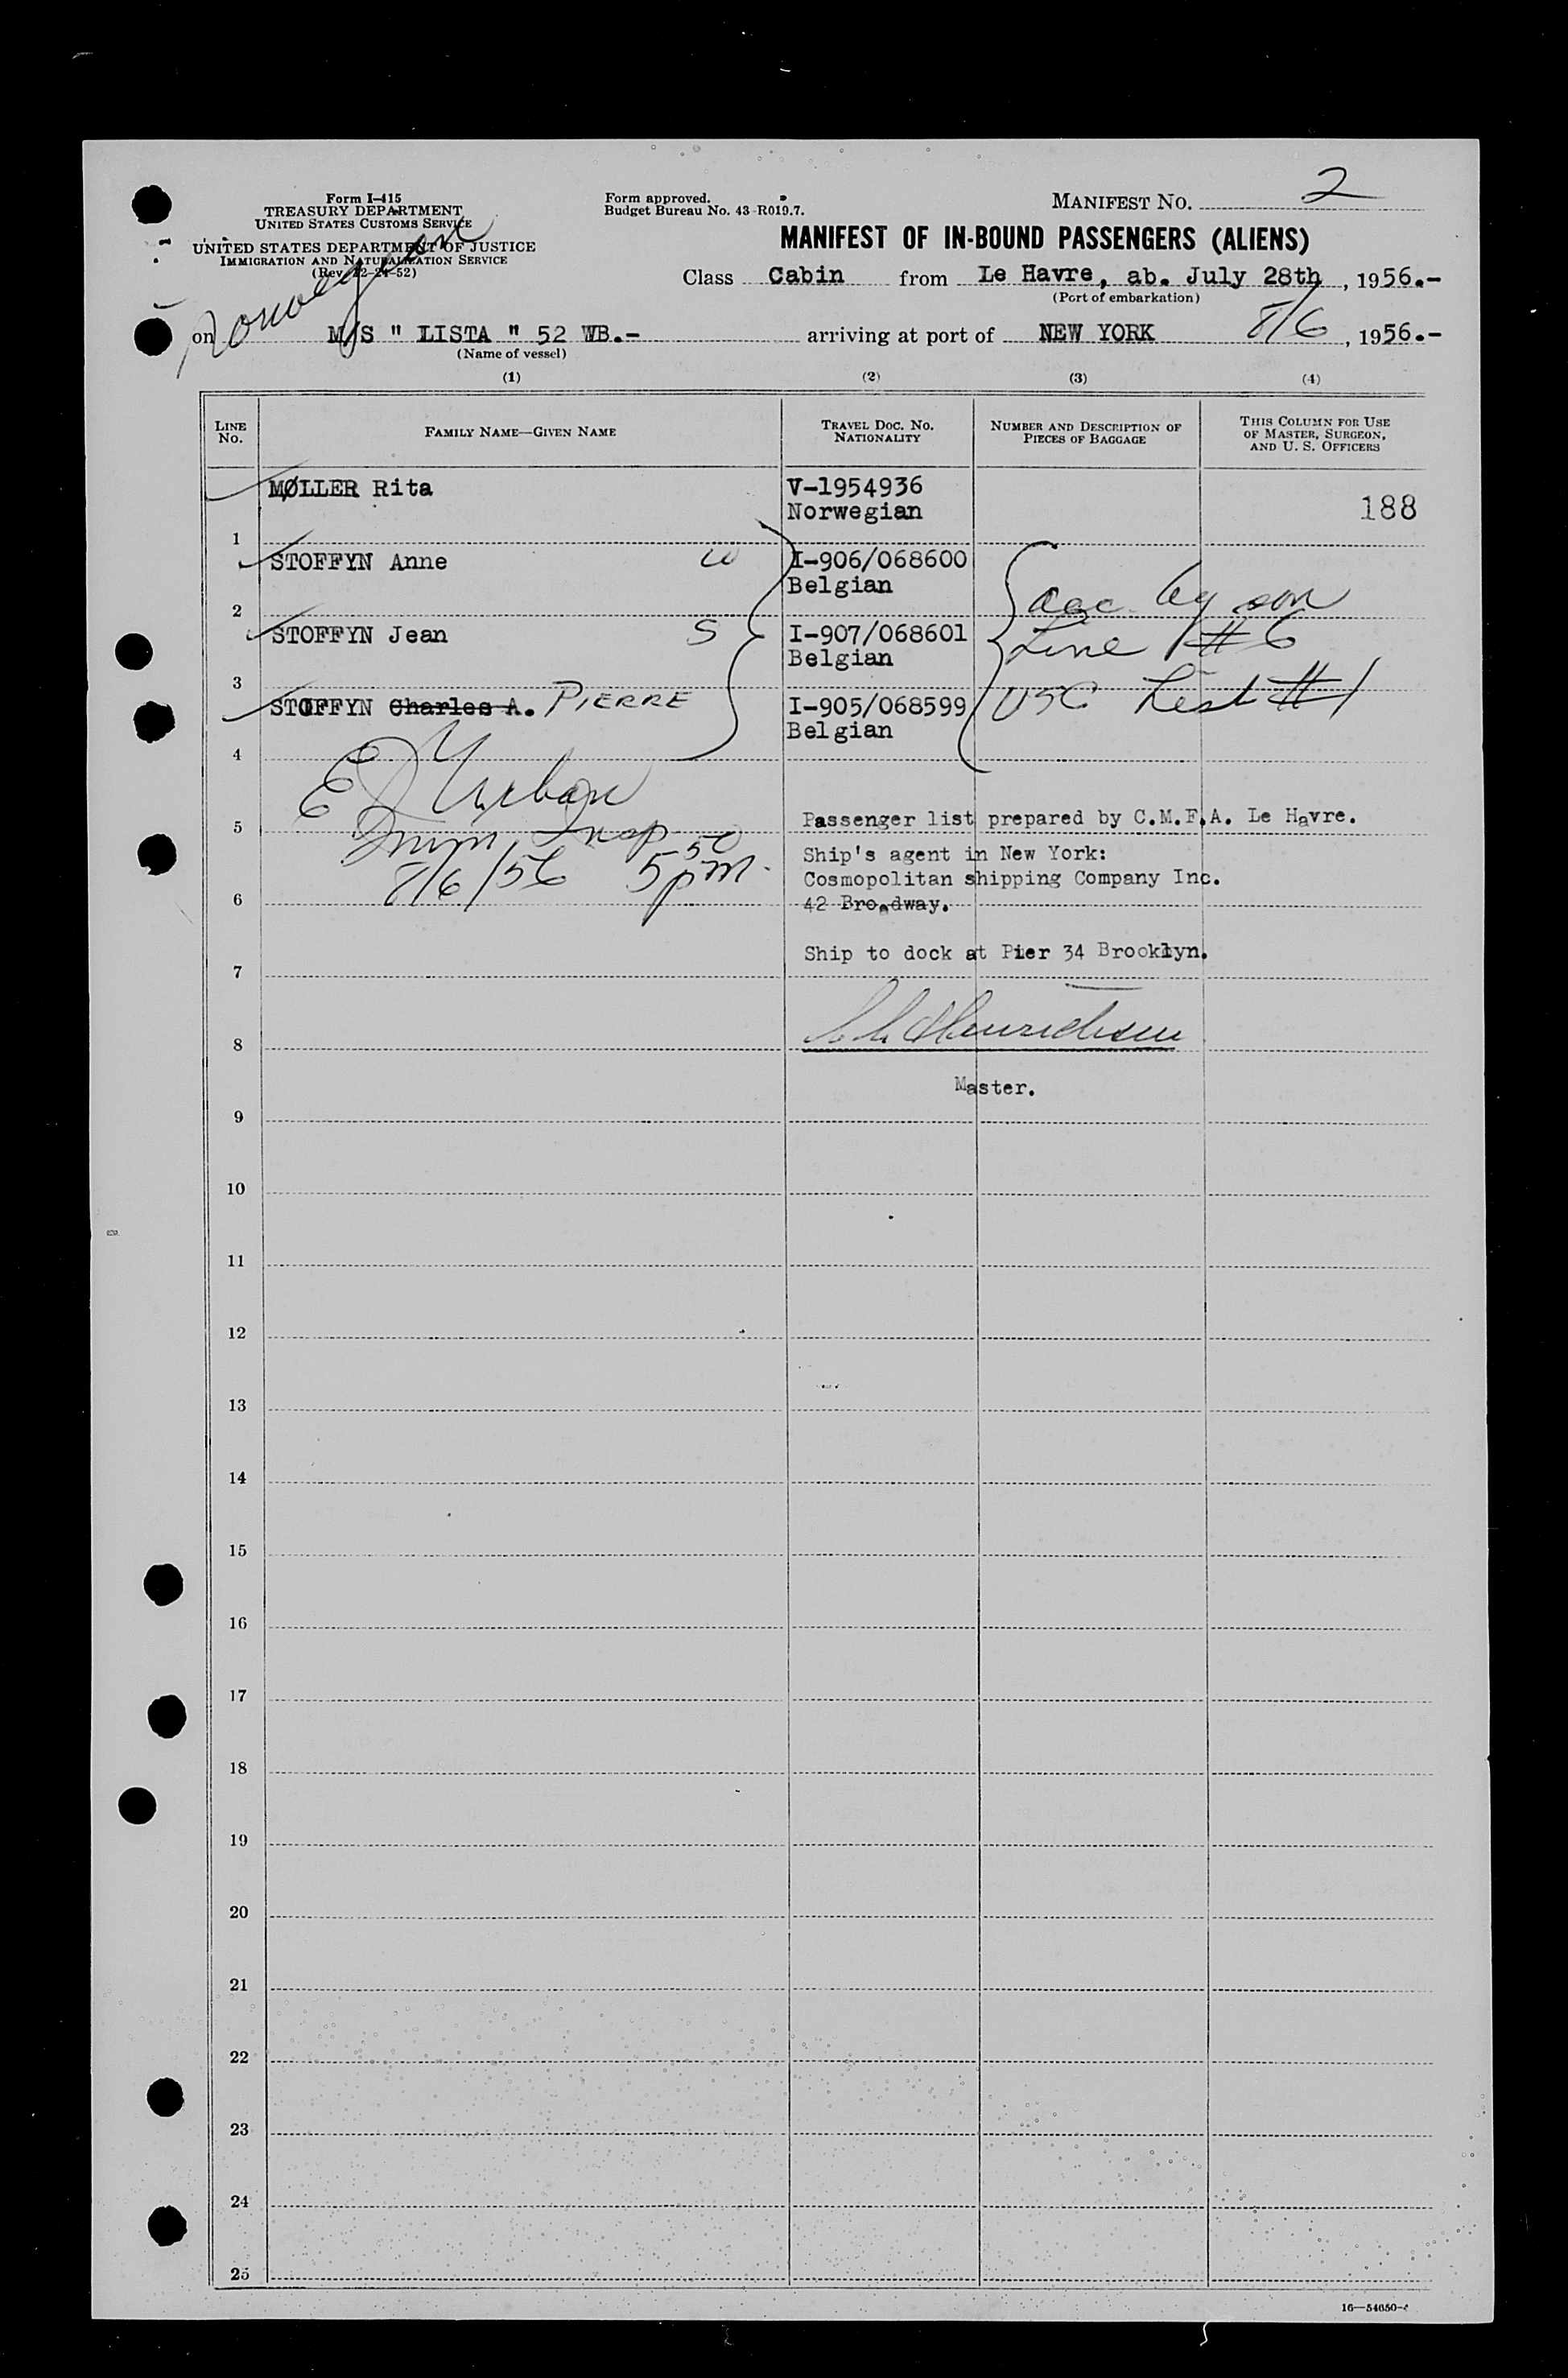 Form I-415
TREASURY DEPARTMENT
UNITED STATES CUSTOMS SERVICE
UNITED STATES DEPARTMENT OF JUSTICE
IMMIGRATION AND NATURALIZATION SERVICE
(Rev. 12-24-52)
Form approved.
Budget Bureau No. 43-R019.7.
MANIFEST NO. 2
MANIFEST OF IN-BOUND PASSENGERS (ALIENS)
Class Cabin from Le Havre, ab. July 28th, 1956.-
(Port of embarkation)
Norwegian
on M/S " LISTA " 52 WB.- arriving at port of NEW YORK 8/6, 1956.-
(Name of vessel)
(1) (2) (3) (4)
LINE NO.
FAMILY NAME—GIVEN NAME
TRAVEL DOC. NO. NATIONALITY
NUMBER AND DESCRIPTION OF PIECES OF BAGGAGE
THIS COLUMN FOR USE OF MASTER, SURGEON, AND U. S. OFFICERS
MØLLER Rita V-1954936
Norwegian 188
1
STOFFYN Anne W I-906/068600
Belgian
2
STOFFYN Jean S I-907/068601
Belgian
3
STOFFYN Charles A. PIERRE I-905/068599
Belgian
4
acc. by son
Line #6
USC List #1
E J Urban
Imm Insp
8/6/56 5 50 pm.
5
6
Passenger list prepared by C.M.F.A. Le Havre.
Ship's agent in New York:
Cosmopolitan shipping Company Inc.
42 Broadway.
Ship to dock at Pier 34 Brooklyn.
7
8
Master.
9
10
11
12
13
14
15
16
17
18
19
20
21
22
23
24
25